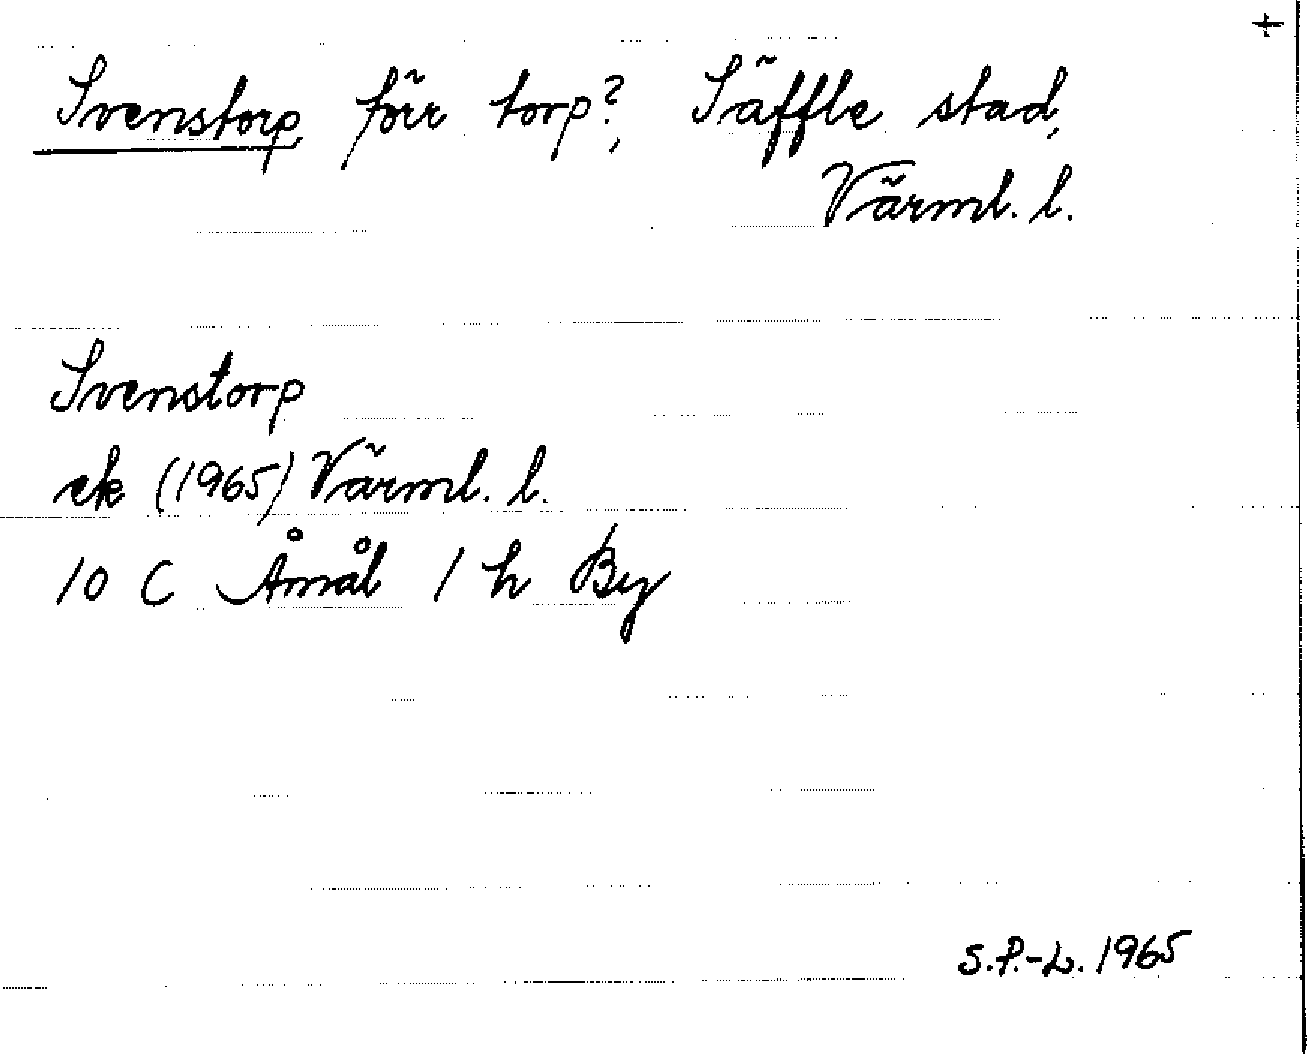 +
Svenstorp, förr torp?, Säffle stad,
Värml. l.
Svenstorp
ek (1965) Värml. l.
10 C Åmål 1 h By
S.P.-L. 1965